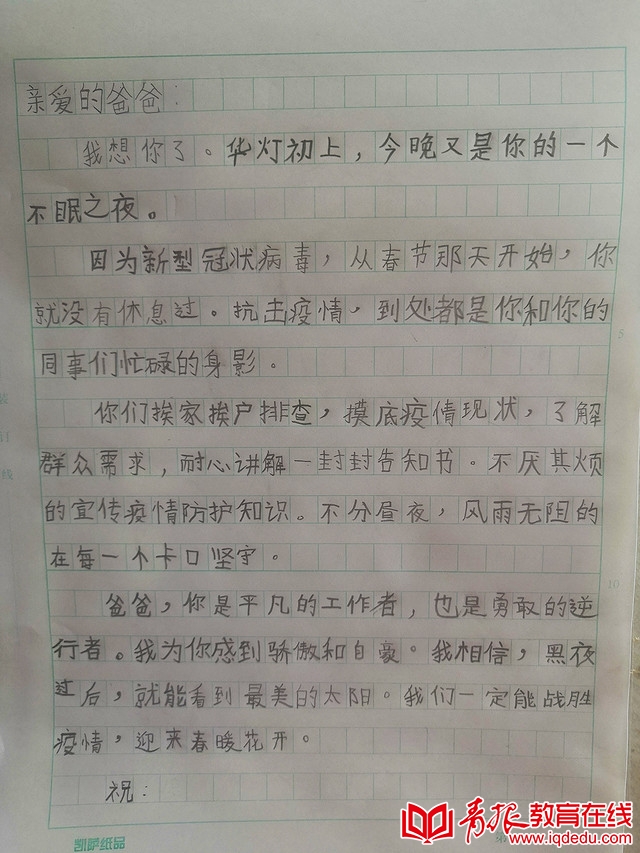 亲爱的爸爸：
我想你了。华灯初上，今晚又是你的一个
不眠之夜。
因为新型冠状病毒，从春节那天开始，你
就没有休息过。抗击疫情，到处都是你和你的
同事们忙碌的身影。
你们挨家挨户排查，摸底疫情现状，了解
群众需求，耐心讲解一封封告知书。不厌其烦
的宣传疫情防护知识。不分昼夜，风雨无阻的
在每一个卡口坚守。
爸爸，你是平凡的工作者，也是勇敢的逆
行者。我为你感到骄傲和自豪。我相信，黑夜
过后，就能看到最美的太阳。我们一定能战胜
疫情，迎来春暖花开。
祝：
5
10
装
订
线
凯萨纸品
青报教育在线
www.iqdedu.com